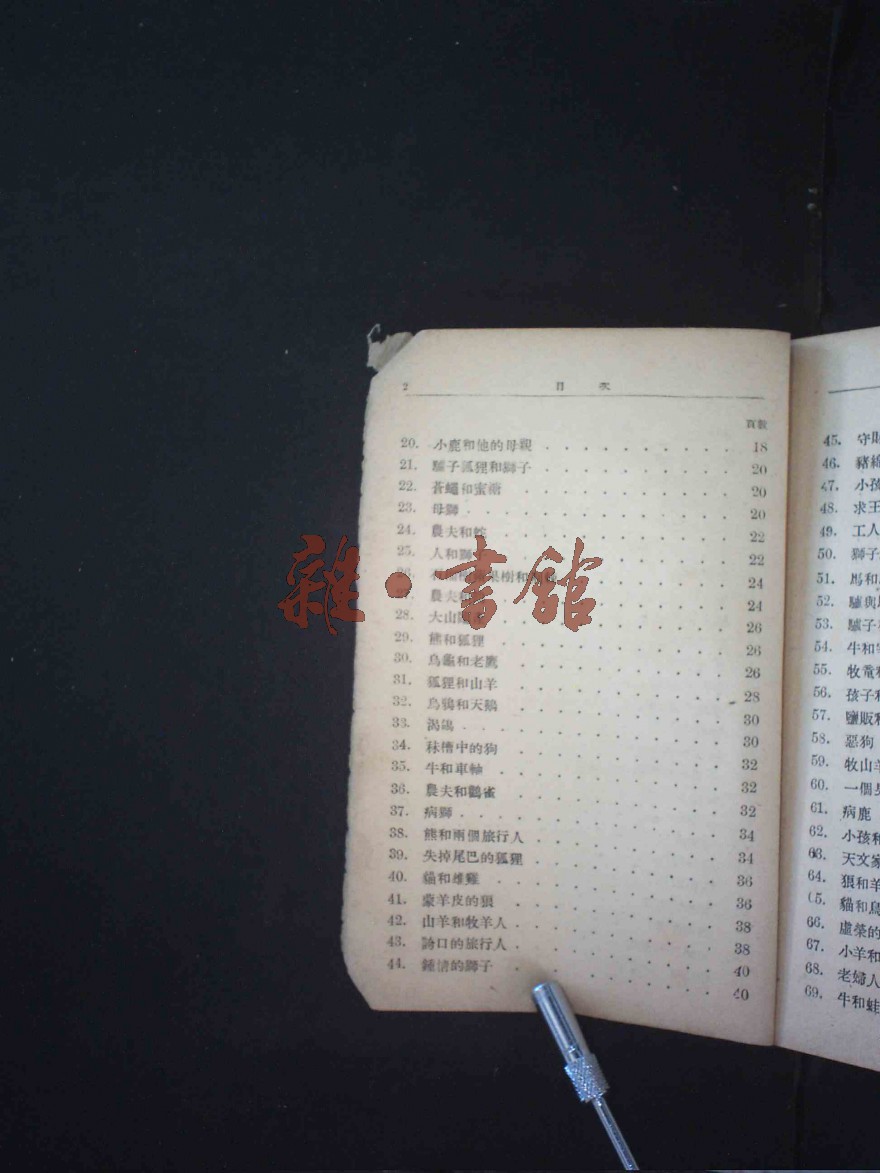 2 目 次
頁數
20. 小鹿和他的母親 18
21. 驢子狐狸和獅子 20
22. 蒼蠅和蜜糖 20
23. 母獅 20
24. 農夫和蛇 22
25. 人和獅子 22
26. 果樹和 24
27. 農夫和 24
28. 大山 26
29. 熊和狐狸 26
30. 烏龜和老鷹 26
31. 狐狸和山羊 28
32. 烏鴉和天鵝 30
33. 渴鴿 30
34. 秣槽中的狗 32
35. 牛和車軸 32
36. 農夫和鸛雀 32
37. 病獅 34
38. 熊和兩個旅行人 34
39. 失掉尾巴的狐狸 36
40. 貓和雄雞 36
41. 蒙羊皮的狼 38
42. 山羊和牧羊人 38
43. 誇口的旅行人 40
44. 鍾情的獅子 40
45. 守財
46. 豬綿
47. 小孩
48. 求王
49. 工人
50. 獅子
51. 馬和
52. 驢與
53. 驢子
54. 牛和
55. 牧
56. 孩子和
57. 鹽販和
58. 惡狗
59. 牧山羊
60. 一個
61. 病鹿
62. 小孩和
63. 天文家
64. 狼和羊
65. 貓和鳥
66. 虛榮的
67. 小羊和
68. 老婦人
69. 牛和蛙
雜·書館